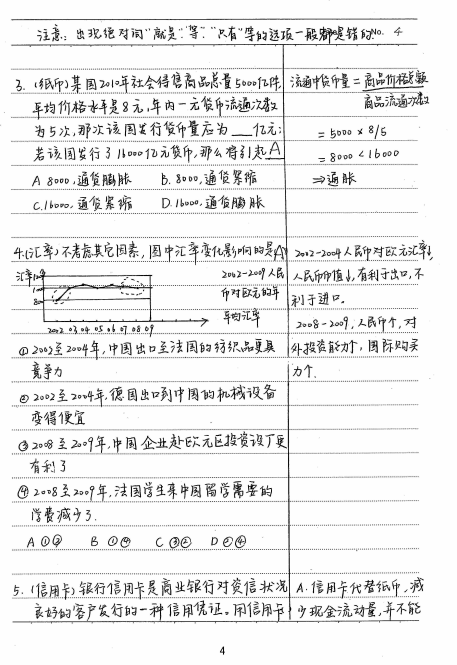 注意：出现绝对词“就是”等、“只有”等的选项一般都是错的 No. 4
3. (纸币) 某国2010年社会待售商品总量5000亿件,
平均价格水平是8元,年内一元货币流通次数
为5次,那次该国发行货币量应为__亿元;
若该国发行了16000亿元货币,那么将引起A
A 8000,通货膨胀 B. 8000,通货紧缩
C. 16000,通货紧缩 D. 16000,通货膨胀
流通中货币量 = 商品价格总额
商品流通次数
= 5000 × 8/5
= 8000 < 16000
⇒通胀
4. (汇率) 不考虑其它因素,图中汇率变化影响的是A
汇率
80
2002 03 04 05 06 07 08 09
2002-2009人民
币对欧元的年
平均汇率
① 2002至2004年,中国出口至法国的纺织品更具
竞争力
② 2002至2004年,德国出口到中国的机械设备
变得便宜
③ 2008至2009年,中国企业赴欧元区投资设厂更
有利了
④ 2008至2009年,法国学生来中国留学需要的
学费减少了.
A ①③ B ①④ C ③② D ②④
2002-2004人民币对欧元汇率↓,
人民币币值↓,有利于出口,不
利于进口.
2008-2009,人民币↑,对
外投资能力↑,国际购买
力↑.
5. (信用卡) 银行信用卡是商业银行对资信状况
良好的客户发行的一种信用凭证。用信用卡
A. 信用卡代替纸币,减
少现金流动量,并不能
4